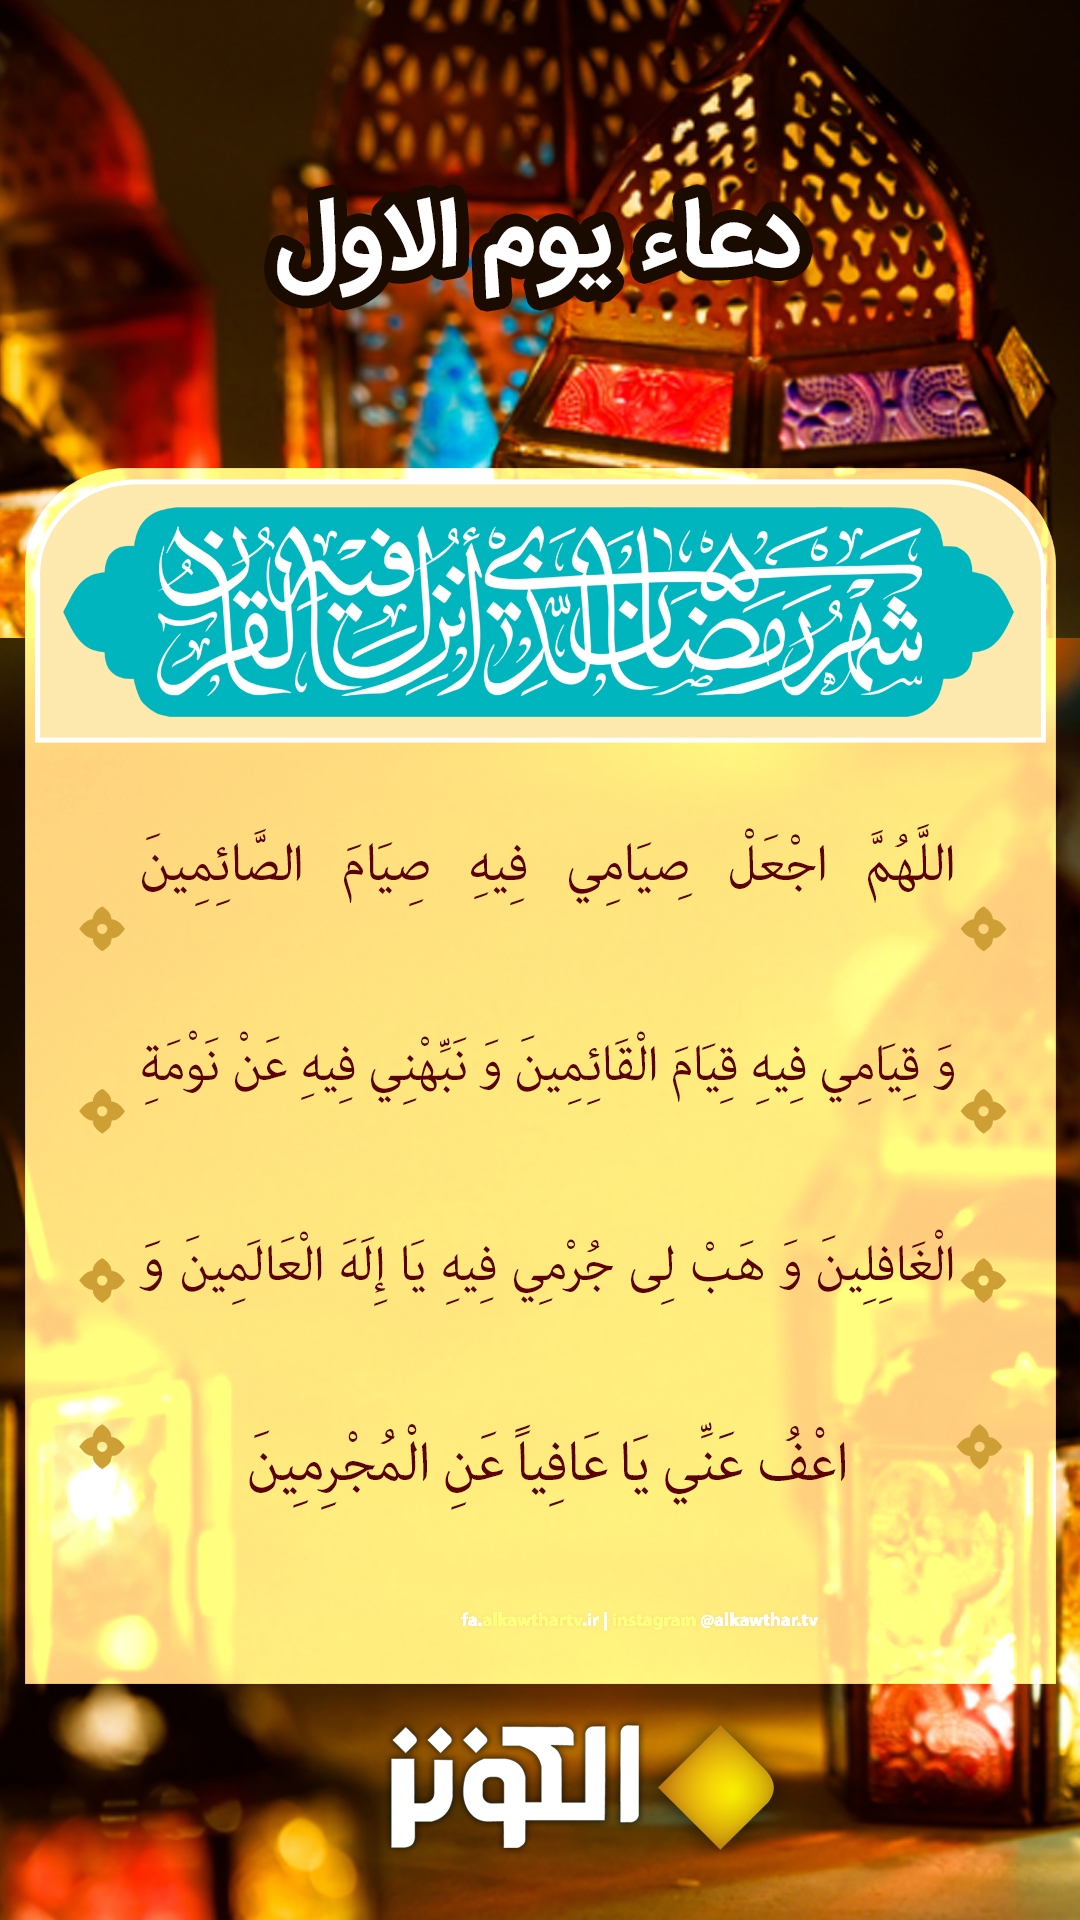 دعاء يوم الاول
شَهْرُ رَمَضَانَ الَّذِي أُنْزِلَ فِيهِ الْقُرْآنُ
اللَّهُمَّ اجْعَلْ صِيَامِي فِيهِ صِيَامَ الصَّائِمِينَ
وَ قِيَامِي فِيهِ قِيَامَ الْقَائِمِينَ وَ نَبِّهْنِي فِيهِ عَنْ نَوْمَةِ
الْغَافِلِينَ وَ هَبْ لِى جُرْمِي فِيهِ يَا إِلَهَ الْعَالَمِينَ وَ
اعْفُ عَنِّي يَا عَافِياً عَنِ الْمُجْرِمِينَ
fa.alkawthartv.ir | instagram @alkawthar.tv
الكوثر